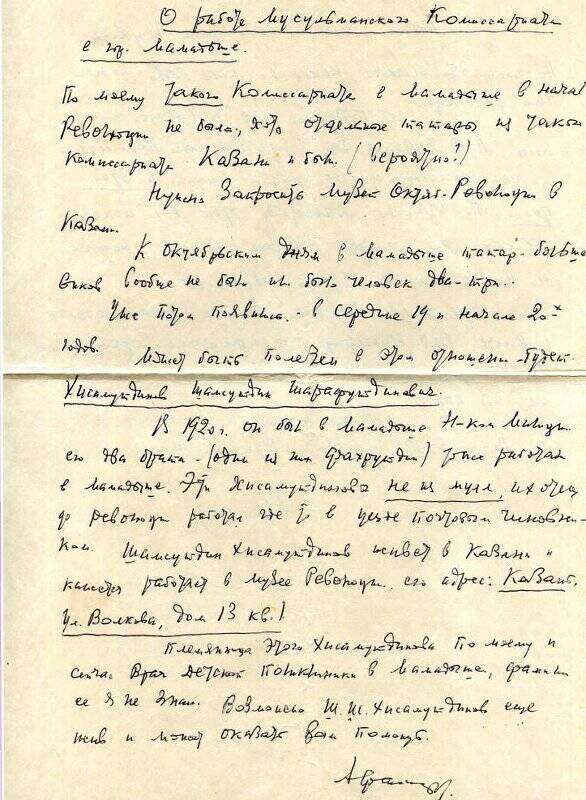 О работе Мусульманского Комиссариата
в гор. Мамадыше.
По моему такого Комиссариата в Мамадыше в начал
Революции не было, хотя отдельные татары из такого
Комиссариата Казани и были. (Вероятно!)
Нужно Запросить Музей Октяб. Революции в
Казани.
К октябрьским дням в Мамадыше татар-больше
виков вообще не было или было человек два-три..
Уже потом появились - в середине 19 и начале 20-х
годов.
Может быть полезен в этом отношении - будет
Хисамутдинов Шамсутдин Шарафутдинович.
В 1920 г. он был в Мамадыше Н-ком Милиции.
его два брата - (один из них Фахрутдин) тоже работал
в Мамадыше. Эти Хисамутдиновы не из мулл, их отец
до революции работал где то в уезде почтовым чиновни-
ком. Шамсутдин Хисамутдинов живет в Казани и
кажется работает в музее Революции, его адрес: Казань,
ул. Волкова, дом 13 кв. 1
Племянница этого Хисамутдинова по моему и
сейчас врач детской поликлиники в Мамадыше, фамилии
ее я не знаю. Возможно Ш.Ш. Хисамутдинов еще
жив и может оказать Вам помощь.